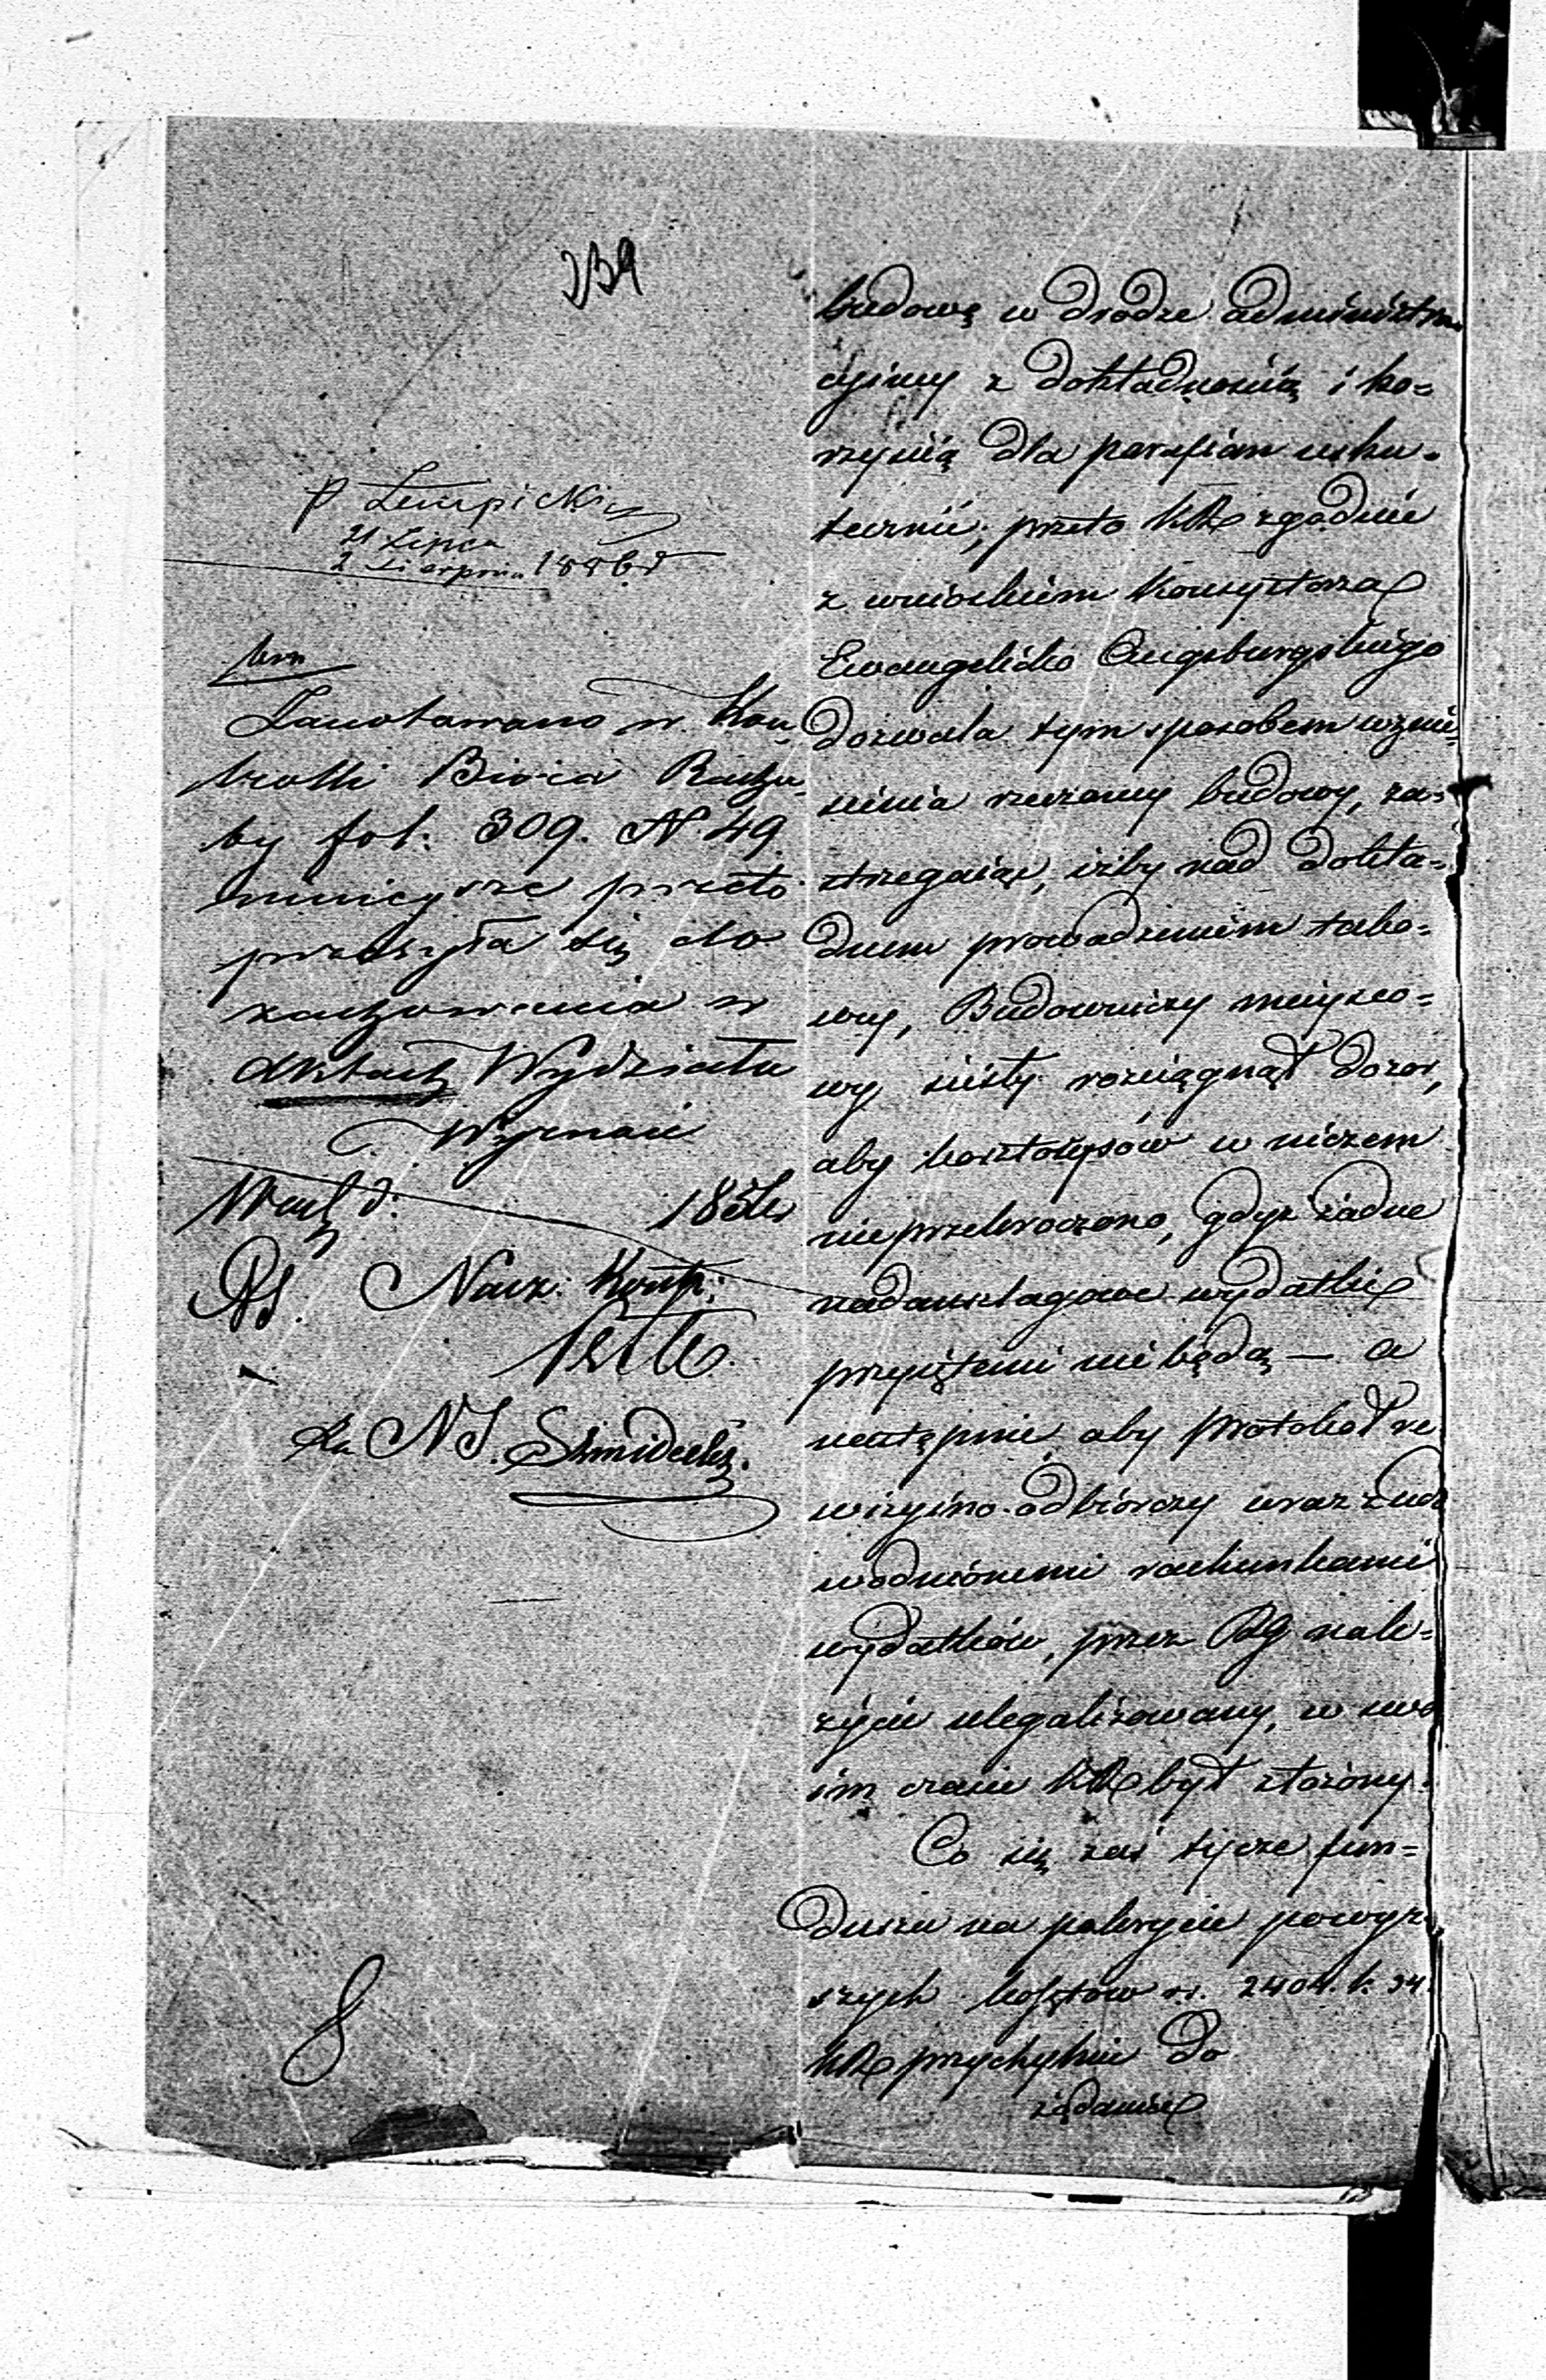 239
P Lempicki
21 Lipca
2 Sierpnia
Zanotowano w Kon-
trolli Bióra Rachu-
by fol: 309. N. 49.
ninieysze przeto
przesyła się do
zachowania w
Aktach Wydziału
Wyznań
Warsz d: 185
Naz: Kont:
Za N S. Szmidecki.
8
budowę w drodze administra
cyjney z dokładnością i ko-
rzyścią dla parafian usku-
tecznić; przeto KR zgodnie
z wnioskiem Konsystorza
Ewangelicko Augsburgskiego
dozwala tym sposobem wznie-
sienia rzeczoney budowy, za-
strzegaiąc, iżby nad dokła-
dnem prowadzeniem tako-
wey, Budowniczy mieysco-
wy ścisły rozciągnął dozor,
aby kosztorysów w niczem
nieprzekroczono, gdyż żadne
nadanszlagowe wydatki
przyiętemi nie będą — a
następnie aby protokoł re
wizyino-odbiorczy wraz z udo
wodnionemi rachunkami
wydatków, przez RG nale-
życie ulegalizowany, w swo
im czasie KR był złożony.
Co się zaś tycze fun-
duszu na pokrycie powyż-
szych kosztów rs. 2404. k. 94
KR przychylnie do
żądania